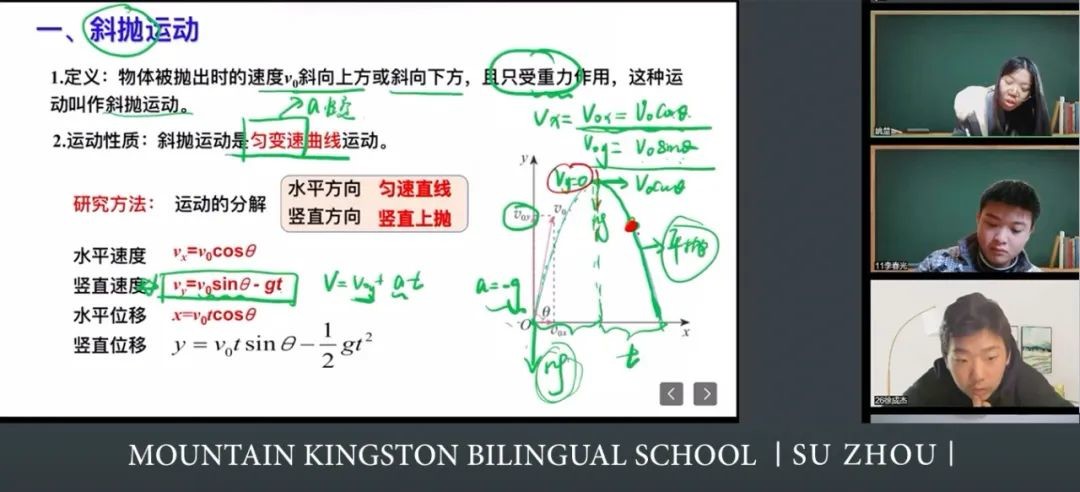 一、斜抛运动
1.定义：物体被抛出时的速度v₀斜向上方或斜向下方，且只受重力作用，这种运
动叫作斜抛运动。
a恒定
2.运动性质：斜抛运动是匀变速曲线运动。
研究方法： 运动的分解
水平方向 匀速直线
竖直方向 竖直上抛
水平速度 vₓ=v₀cosθ
竖直速度 vᵧ=v₀sinθ - gt
V=V₀y+a·t
水平位移 x=v₀tcosθ
竖直位移 y = v₀t sin θ − 1/2 gt²
Vx= V₀x= V₀cosθ
V₀y= V₀sinθ
y
Vy=0
V₀cosθ
v₀y
v₀
mg
平抛
a=-g
θ
O
v₀x
x
mg
t
姚莹
11李春光
26徐成杰
MOUNTAIN KINGSTON BILINGUAL SCHOOL | SU ZHOU |